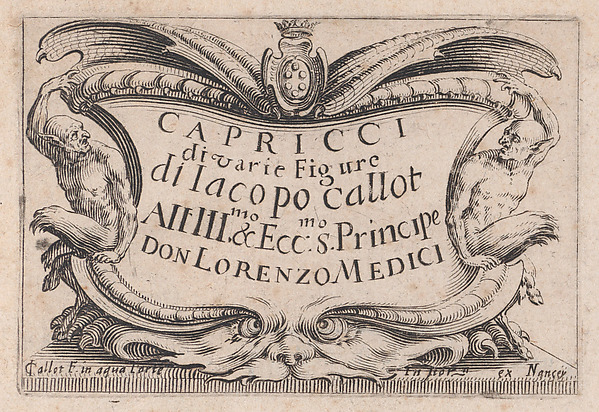 CAPRICCI
di varie Figure
di Iacopo Callot
All Ill.mo & Ecc.mo S. Principe
DON LORENZO MEDICI
Callot F. in aqua forte
ex Nanceÿ